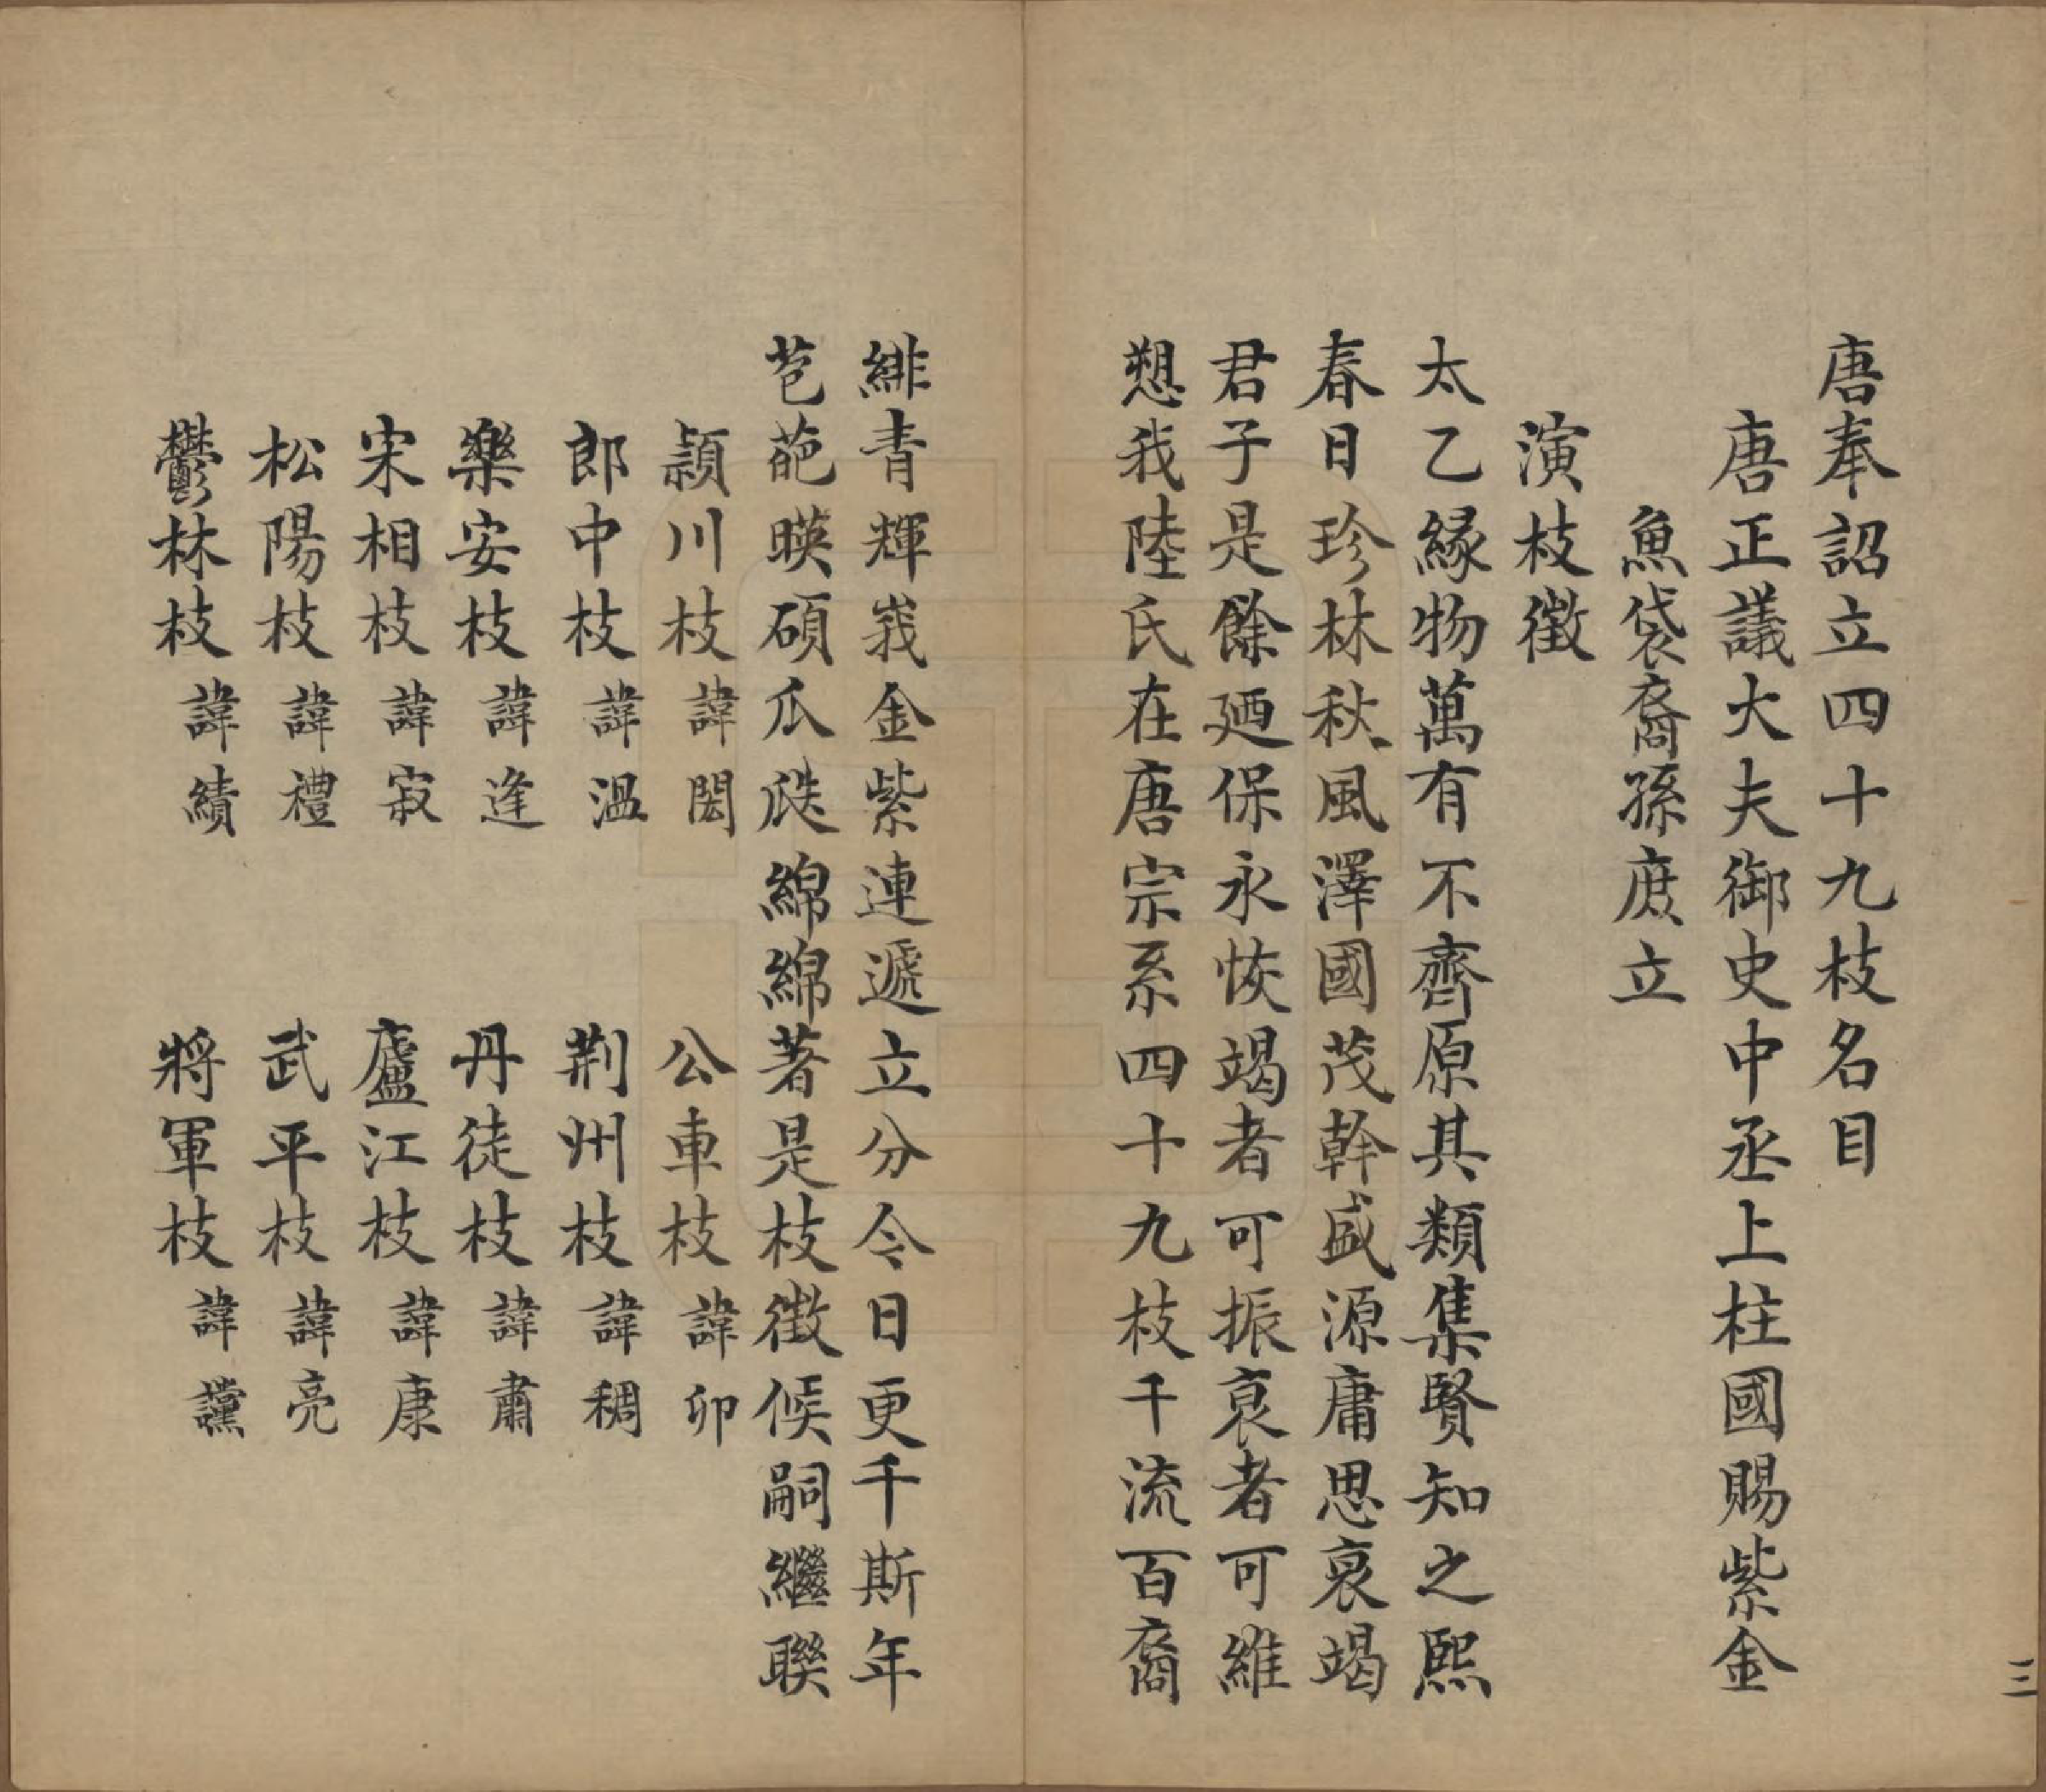 唐奉詔立四十九枝名目
唐正議大夫御史中丞上柱國賜紫金
魚袋裔孫庶立
演枝徵
太乙緣物萬有不齊原其類集賢知之熙
春日珍林秋風澤國茂幹盛源庸思衰竭
君子是餘廼保永恢竭者可振衰者可維
想我陸氏在唐宗系四十九枝千流百裔
緋青輝峩金紫連遞立分令日更千斯年
芑葩暎碩瓜瓞綿綿著是枝徵候嗣繼聯
潁川枝諱閎
公車枝諱卯
郎中枝諱溫
荆州枝諱稠
樂安枝諱逢
丹徒枝諱肅
宋相枝諱寂
廬江枝諱康
松陽枝諱禮
武平枝諱亮
鬱林枝諱績
將軍枝諱讜
三